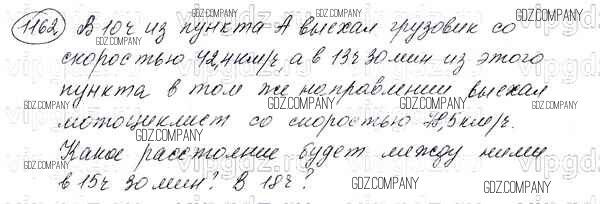 1162) В 10ч из пункта А выехал грузовик со
скоростью 42,4км/ч, а в 13ч 30мин из этого
пункта в том же направлении выехал
мотоциклист со скоростью 78,5км/ч.
Какое расстояние будет между ними
в 15ч 30мин? В 18ч?
GDZ.COMPANY
GDZ.COMPANY
GDZ.COMPANY
GDZ.COMPANY
GDZ.COMPANY
GDZ.COMPANY
GDZ.COMPANY
GDZ.COMPANY
GDZ.COMPANY
GDZ.COMPANY
GDZ.COMPANY